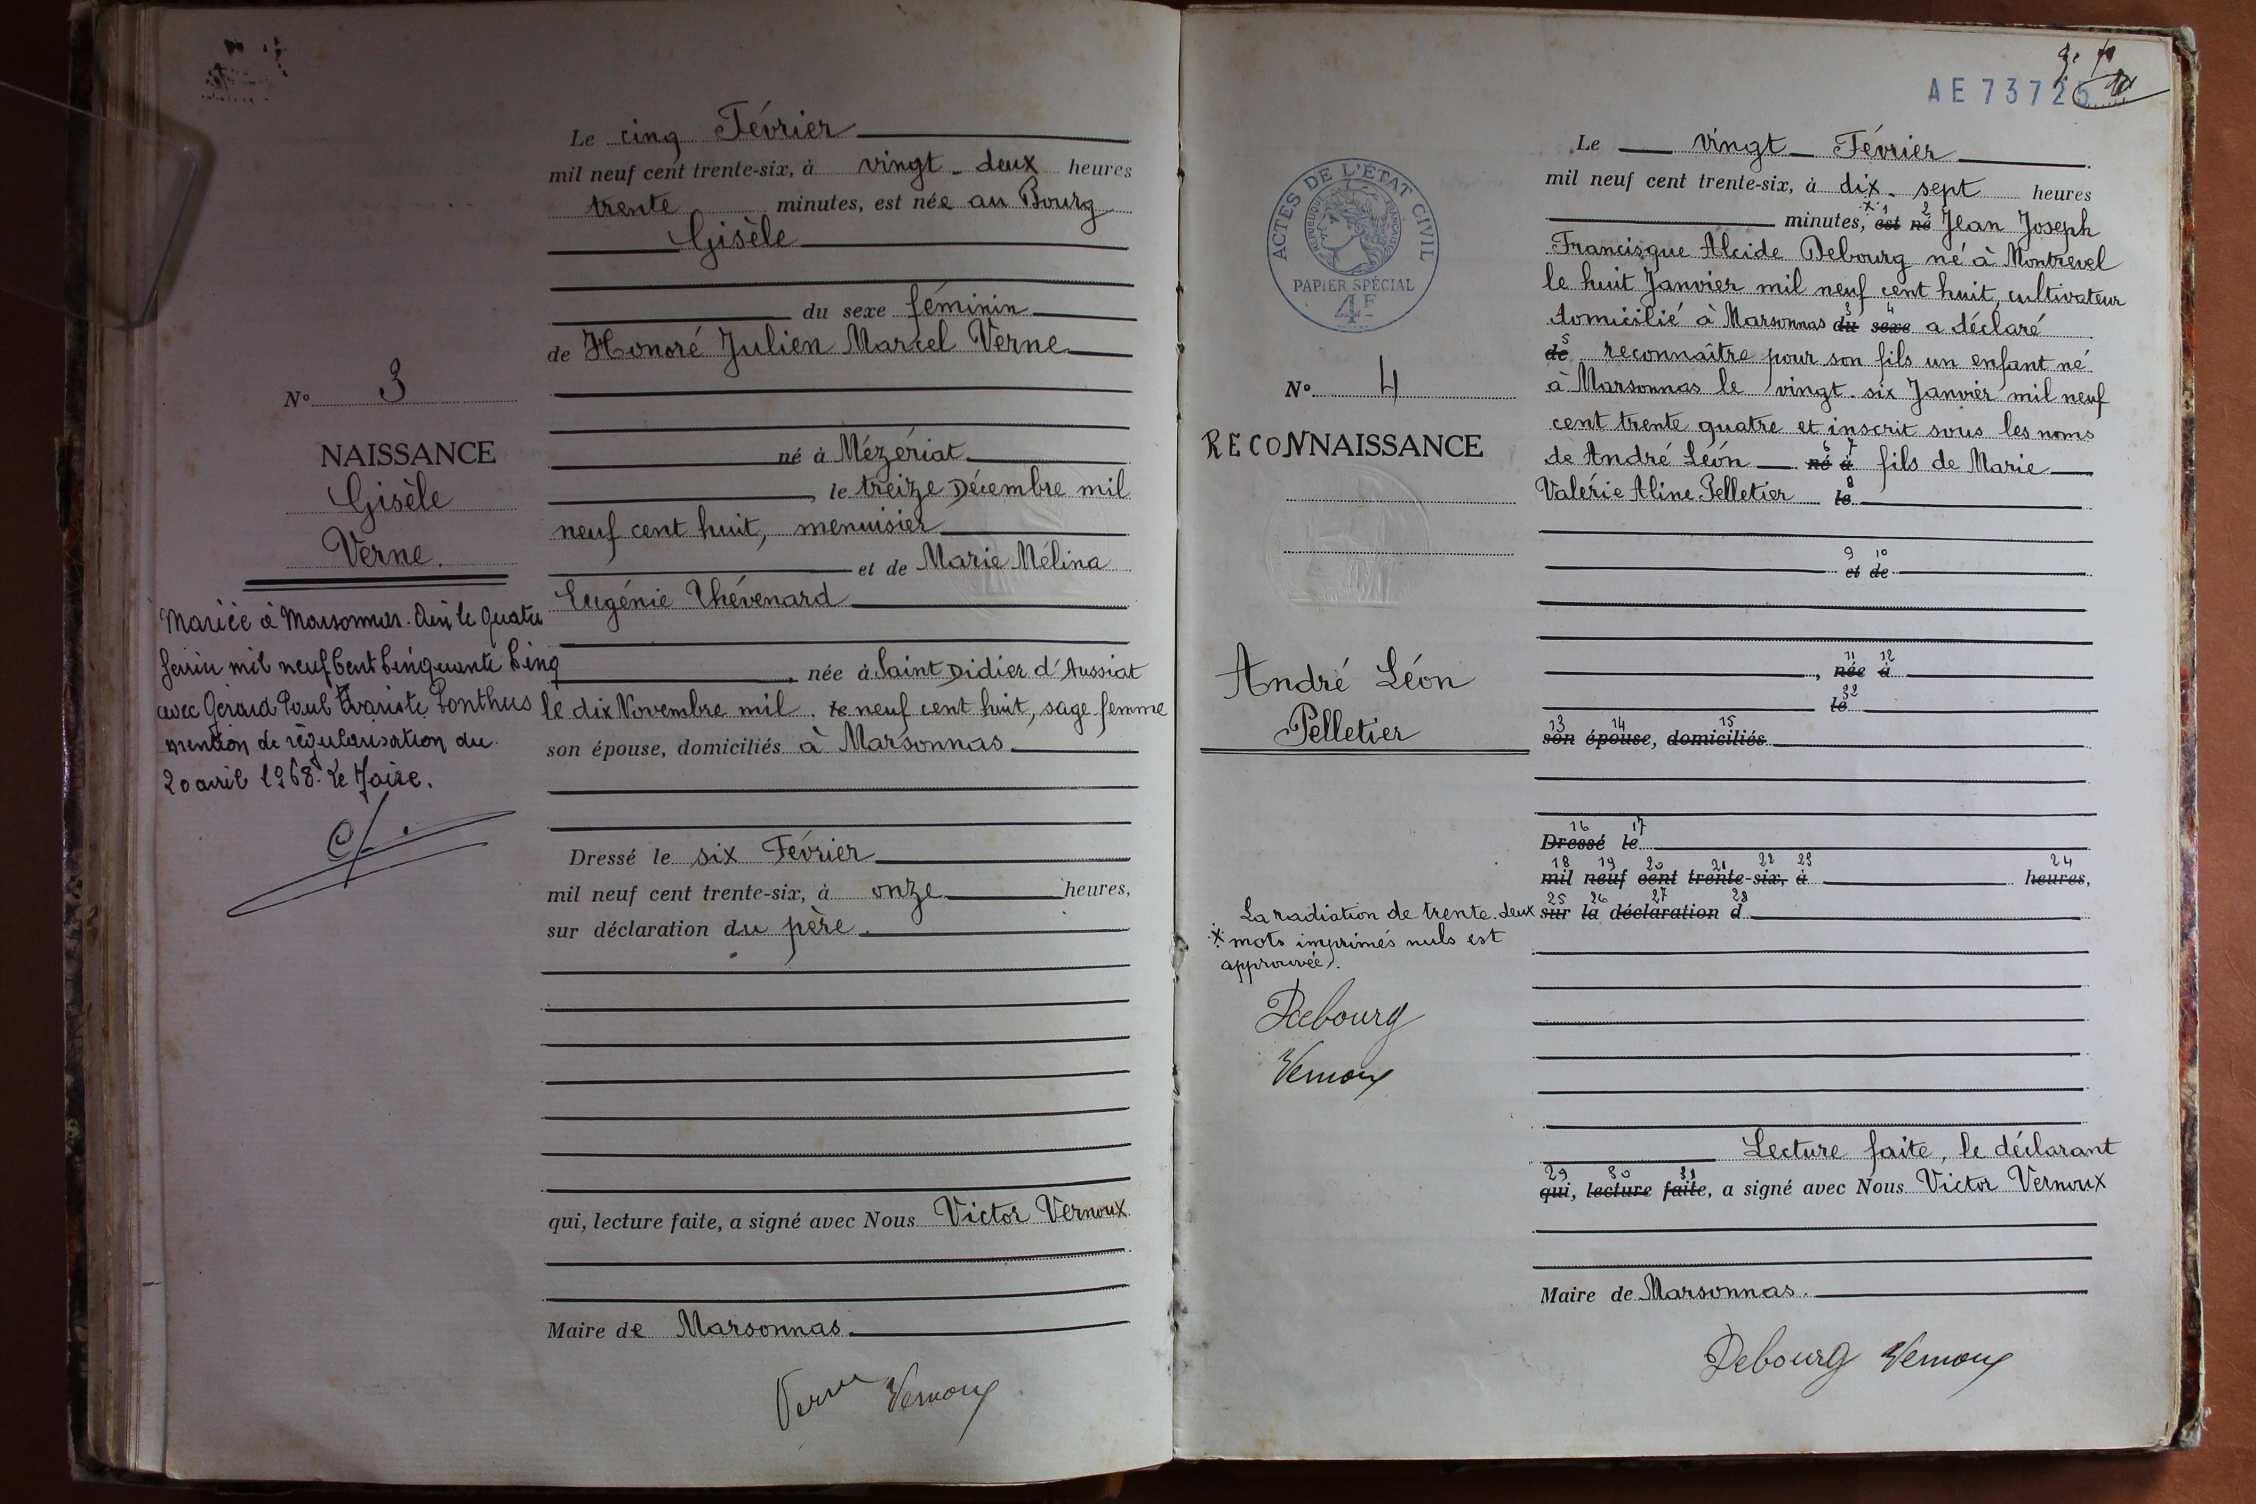 Le cinq Février
mil neuf cent trente-six, à vingt-deux heures
trente minutes, est née au Bourg
Gisèle
du sexe féminin
de Honoré Julien Marcel Verne
né à Mézériat
, le treize Décembre mil
neuf cent huit, menuisier
et de Marie Mélina
Eugénie Thévenard
, née à Saint Didier d'Aussiat
le dix Novembre mil le neuf cent huit, sage femme
son épouse, domiciliés à Marsonnas
Dressé le six Février
mil neuf cent trente-six, à onze heures,
sur déclaration du père.
qui, lecture faite, a signé avec Nous Victor Vernoux
Maire de Marsonnas
Verne Vernoux
N° 3
NAISSANCE
Gisèle
Verne.
Mariée à Marsonnas. Ain le quatre
Juin mil neuf Cent Cinquante Cinq
avec Gérard Paul Evariste Ponthus
mention de régularisation du
20 avril 1968. Le Maire.
AE 73725
ACTES DE L'ÉTAT CIVIL
RÉPUBLIQUE FRANÇAISE
PAPIER SPÉCIAL
4F
N° 4
RECONNAISSANCE
André Léon
Pelletier
La radiation de trente-deux
x mots imprimés nuls est
approuvée.
Debourg
Vernoux
Le vingt Février
mil neuf cent trente-six, à dix-sept heures
x 1 2
minutes, est né Jean Joseph
Francisque Alcide Debourg né à Montrevel
le huit Janvier mil neuf cent huit, cultivateur
3 4
domicilié à Marsonnas du sexe a déclaré
5
de reconnaître pour son fils un enfant né
à Marsonnas le vingt-six Janvier mil neuf
cent trente quatre et inscrit sous les noms
6 7
de André Léon né à fils de Marie
8
Valérie Aline Pelletier le
9 10
et de
11 12
, née à
32
le
13 14 15
son épouse, domiciliés
16 17
Dressé le
18 19 20 21 22 23 24
mil neuf cent trente-six, à heures,
25 26 27 28
sur la déclaration d
Lecture faite, le déclarant
29 30 31
qui, lecture faite, a signé avec Nous Victor Vernoux
Maire de Marsonnas.
Debourg Vernoux